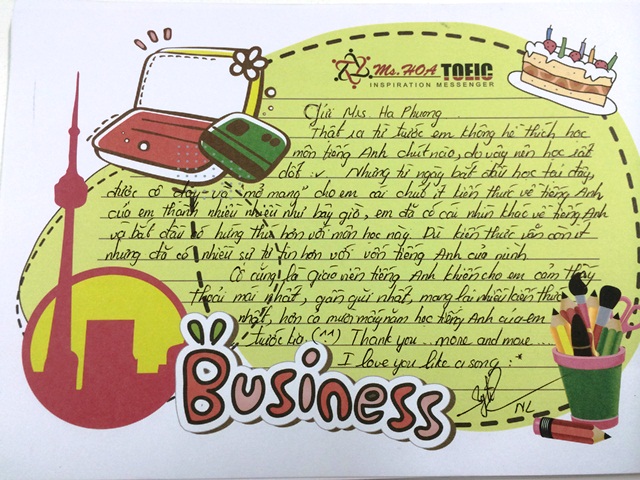 Ms. HOA TOEIC
INSPIRATION MESSENGER
Gửi Mss Ha Phương
Thật ra từ trước em không hề thích học
môn tiếng Anh chút nào, do vậy nên học rất
dốt. Nhưng từ ngày bắt đầu học tại đây,
được cô dạy và "mở mang" cho em cái chút ít kiến thức về tiếng Anh
của em thành nhiều nhiều như bây giờ, em đã có cái nhìn khác về tiếng Anh
và bắt đầu có hứng thú hơn với môn học này. Dù kiến thức vẫn còn ít
nhưng đã có nhiều sự tự tin hơn với vốn tiếng Anh của mình.
Cô cũng là giáo viên tiếng Anh khiến cho em cảm thấy
thoải mái nhất, gần gũi nhất, mang lại nhiều kiến thức
nhất, hơn cả mười mấy năm học tiếng Anh của em
trước kia (^^) Thank you .. more and more...
I love you like a song :*
NL
Business